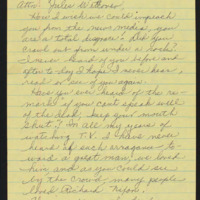 Attn: Jules Witcover,
How I wish we could impeach
you from the news media, you
are a total ignoramus. Did you
crawl out from under a rock?
I never heard of you before and
after to-day I hope I never hear
read or see of you again.
Have you ever heard of the re-
mark if you can't speak well
of the dead, keep your mouth
shut? In all my years of
watching T.V. I have never
heard of such arrogance to-
ward a great man, we loved
him and as you could see
by the crowd many people
loved Richard Nixon.